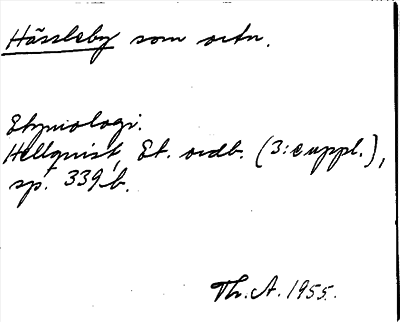 Hässleby som ortn.
Etymologi.
Hellquist, Et. ordb. (3:e uppl.),
sp. 339 b.
Th. A. 1955.